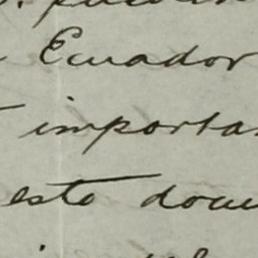 Ecuador
importa
esto docu